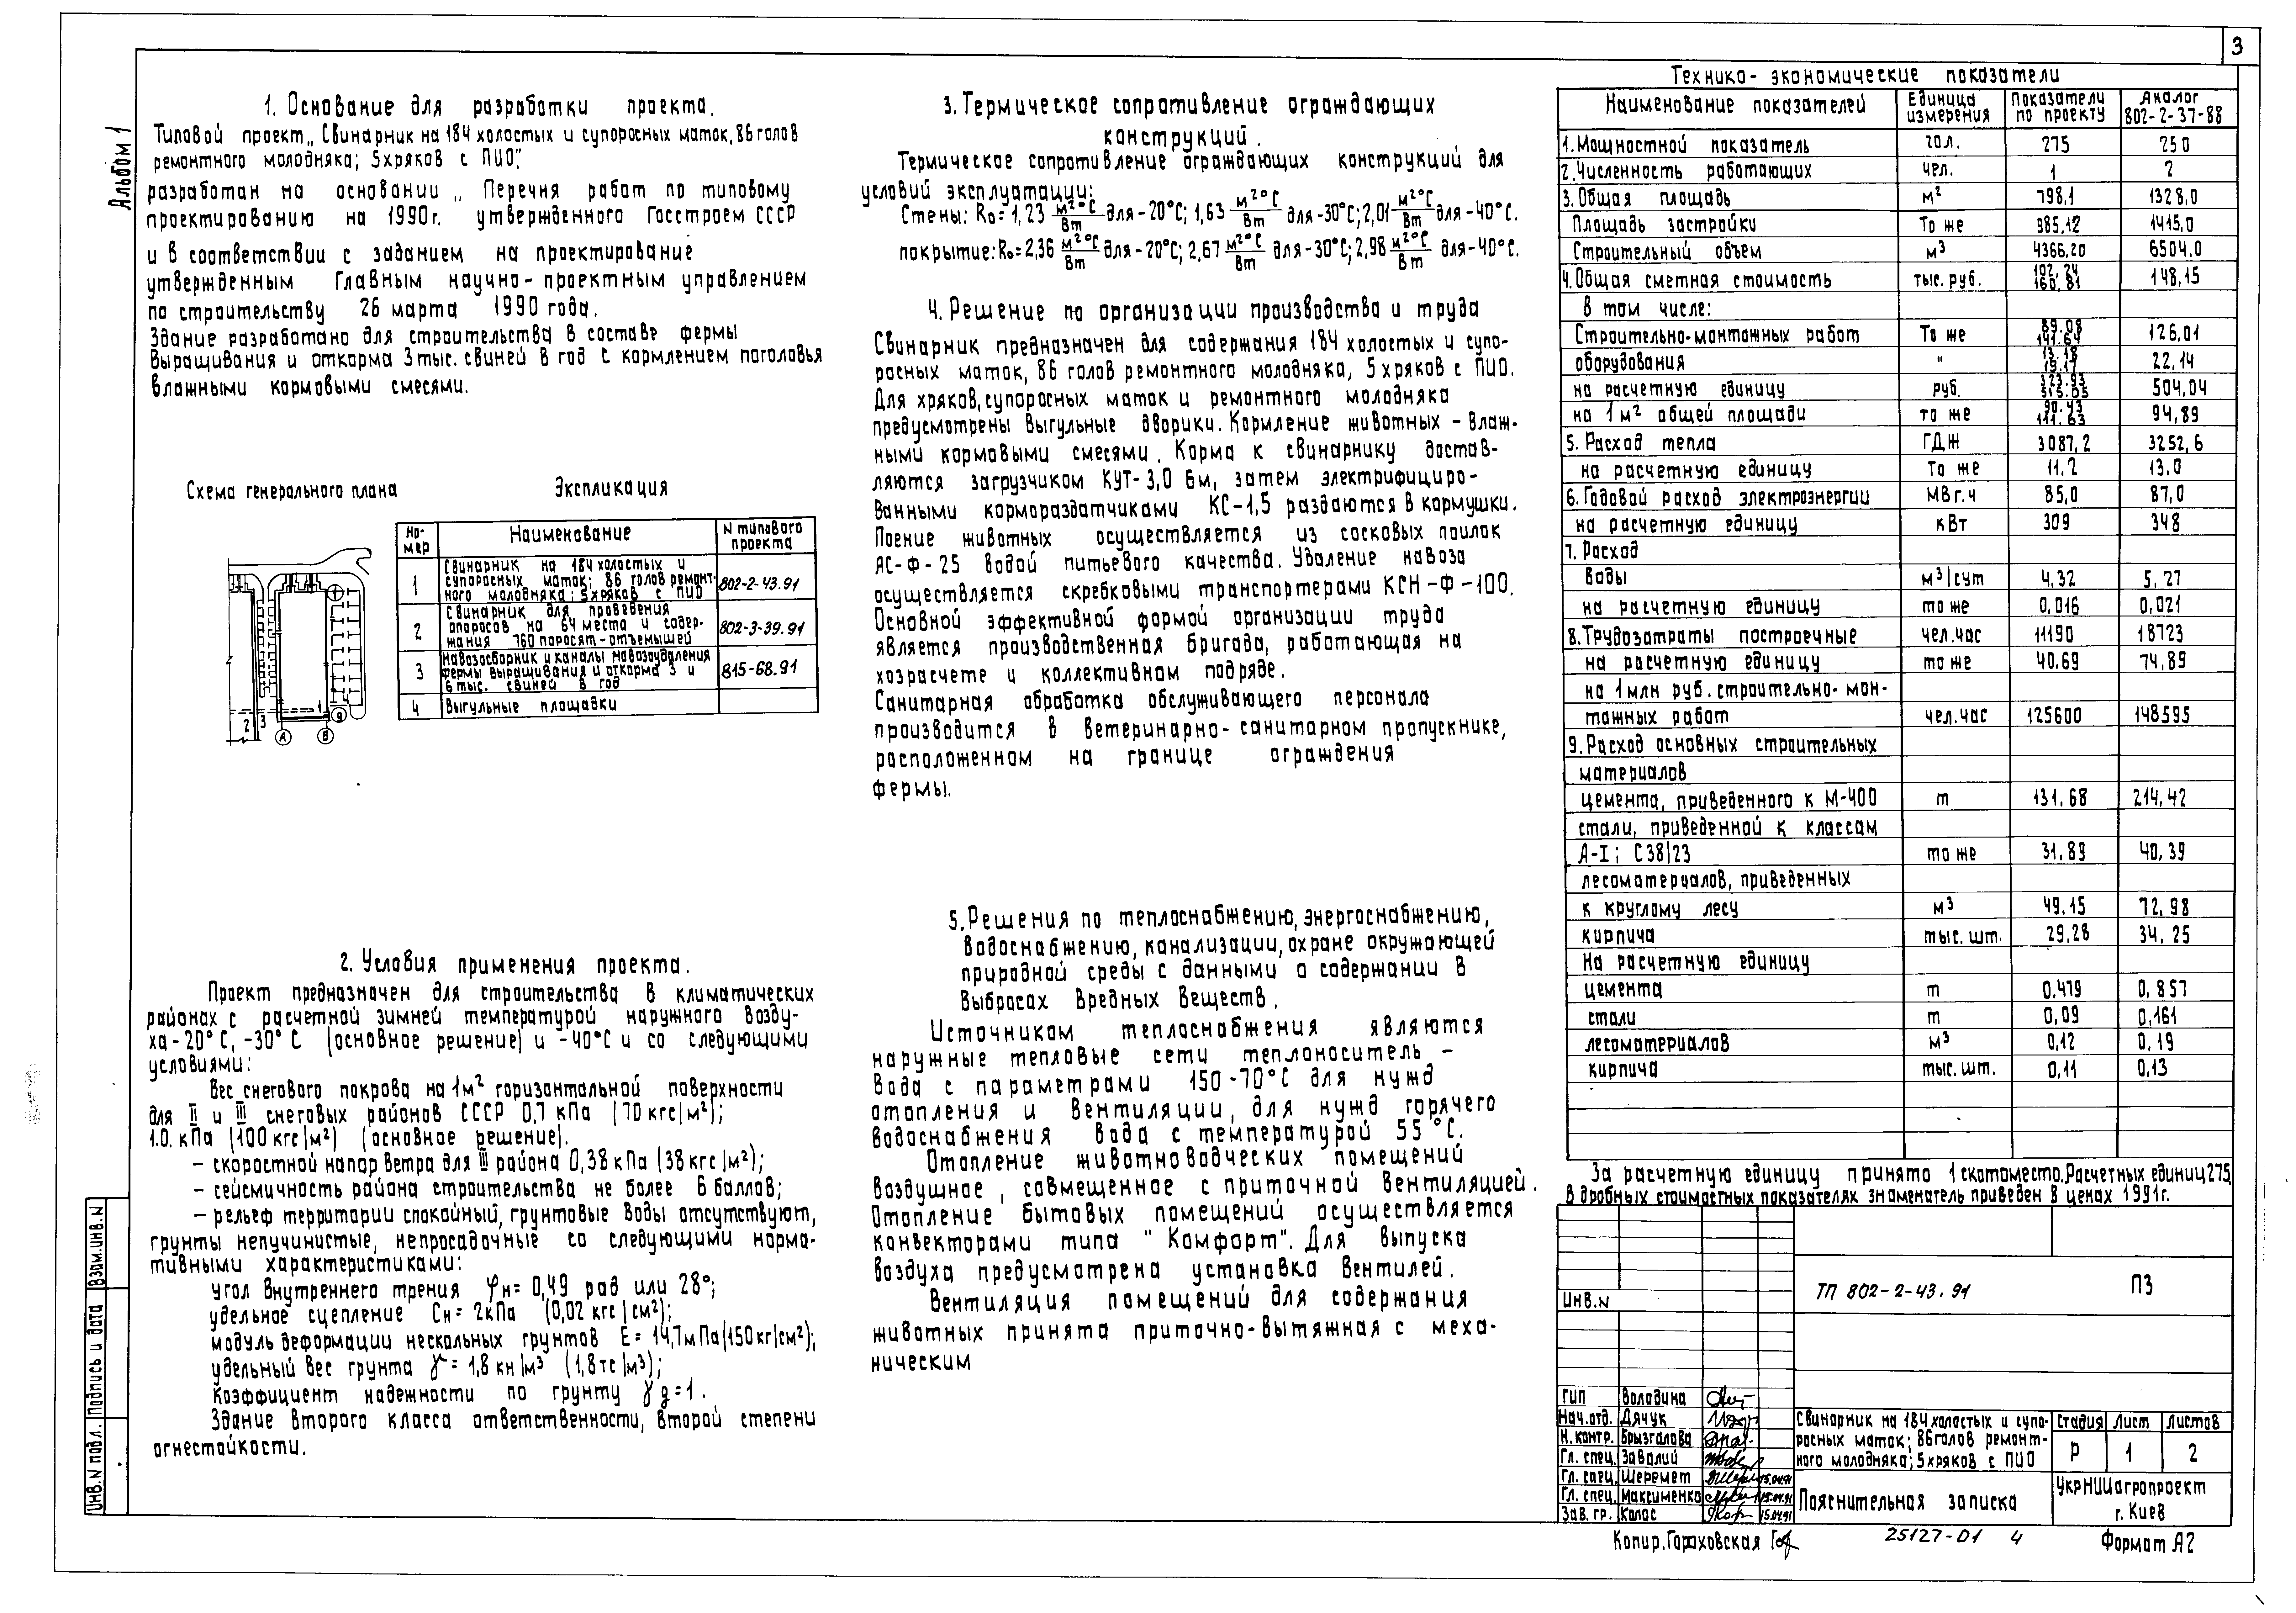 3
Альбом 1
1. Основание для разработки проекта.
Типовой проект „Свинарник на 184 холостых и супоросных маток, 86 голов
ремонтного молодняка; 5 хряков с ПИО",
разработан на основании „Перечня работ по типовому
проектированию на 1990г. утвержденного Госстроем СССР
и в соответствии с заданием на проектирование
утвержденным Главным научно-проектным управлением
по строительству 26 марта 1990 года.
Здание разработано для строительства в составе фермы
выращивания и откорма 3 тыс. свиней в год с кормлением поголовья
влажными кормовыми смесями.
Схема генерального плана
2 3 1 4 9
А В
Экспликация
Но-мер Наименование N типового проекта
1 Свинарник на 184 холостых и
супоросных маток; 86 голов ремонт- 802-2-43.91
ного молодняка; 5 хряков с ПИО
2 Свинарник для проведения
опоросов на 64 места и содер- 802-3-39.91
жания 760 поросят-отъемышей
3 Навозосборник и каналы навозоудаления
фермы выращивания и откорма 3 и 815-68.91
6 тыс. свиней в год
4 Выгульные площадки
2. Условия применения проекта.
Проект предназначен для строительства в климатических
районах с расчетной зимней температурой наружного возду-
ха -20°С, -30°С (основное решение) и -40°С и со следующими
условиями:
Вес снегового покрова на 1м² горизонтальной поверхности
для II и III снеговых районов СССР 0,7 кПа (70 кгс/м²);
1.0. кПа (100 кгс/м²) (основное решение).
– скоростной напор ветра для III района 0,38 кПа (38 кгс/м²);
– сейсмичность района строительства не более 6 баллов;
– рельеф территории спокойный, грунтовые воды отсутствуют,
грунты непучинистые, непросадочные со следующими норма-
тивными характеристиками:
угол внутреннего трения φн = 0,49 рад или 28°;
удельное сцепление Сн = 2кПа (0,02 кгс/см²);
модуль деформации нескальных грунтов Е = 14,7мПа (150кг/см²);
удельный вес грунта γ = 1,8 кн/м³ (1,8тс/м³);
Коэффициент надежности по грунту γg = 1.
Здание второго класса ответственности, второй степени
огнестойкости.
3. Термическое сопротивление ограждающих
конструкций.
Термическое сопротивление ограждающих конструкций для
условий эксплуатации:
Стены: Ro = 1,23 м²°С/Вт для -20°С; 1,63 м²°С/Вт для -30°С; 2,01 м²°С/Вт для -40°С.
покрытие: Ro = 2,36 м²°С/Вт для -20°С; 2,67 м²°С/Вт для -30°С; 2,98 м²°С/Вт для -40°С.
4. Решение по организации производства и труда
Свинарник предназначен для содержания 184 холостых и супо-
росных маток, 86 голов ремонтного молодняка, 5 хряков с ПИО.
Для хряков, супоросных маток и ремонтного молодняка
предусмотрены выгульные дворики. Кормление животных – влаж-
ными кормовыми смесями. Корма к свинарнику достав-
ляются загрузчиком КУТ-3,0 Бм, затем электрифициро-
ванными кормораздатчиками КС-1,5 раздаются в кормушки.
Поение животных осуществляется из сосковых поилок
АС-Ф-25 водой питьевого качества. Удаление навоза
осуществляется скребковыми транспортерами КСН-Ф-100.
Основной эффективной формой организации труда
является производственная бригада, работающая на
хозрасчете и коллективном подряде.
Санитарная обработка обслуживающего персонала
производится в ветеринарно-санитарном пропускнике,
расположенном на границе ограждения
фермы.
5. Решения по теплоснабжению, энергоснабжению,
водоснабжению, канализации, охране окружающей
природной среды с данными о содержании в
выбросах вредных веществ.
Источником теплоснабжения являются
наружные тепловые сети теплоноситель –
вода с параметрами 150-70°С для нужд
отопления и вентиляции, для нужд горячего
водоснабжения вода с температурой 55°С.
Отопление животноводческих помещений
воздушное, совмещенное с приточной вентиляцией.
Отопление бытовых помещений осуществляется
конвекторами типа "Комфорт". Для выпуска
воздуха предусмотрена установка вентилей.
Вентиляция помещений для содержания
животных принята приточно-вытяжная с меха-
ническим
Технико-экономические показатели
Наименование показателей Единица измерения Показатели по проекту Аналог 802-2-37-88
1. Мощностной показатель гол. 275 250
2. Численность работающих чел. 1 2
3. Общая площадь м² 798,1 1328,0
Площадь застройки То же 985,12 1415,0
Строительный объем м³ 4366,20 6504.0
4. Общая сметная стоимость тыс. руб. 102,24 / 160,81 148,15
в том числе:
Строительно-монтажных работ То же 89.08 / 141.64 126,01
оборудования " 13.18 / 19.17 22,14
на расчетную единицу руб. 323.93 / 515.05 504,04
на 1 м² общей площади то же 90.43 / 111.63 94,89
5. Расход тепла ГДЖ 3087,2 3252,6
на расчетную единицу То же 11.2 13.0
6. Годовой расход электроэнергии МВт.ч 85,0 87,0
на расчетную единицу кВт 309 348
7. Расход
воды м³/сут 4,32 5,27
на расчетную единицу то же 0,016 0,021
8. Трудозатраты построечные чел.час 11190 18723
на расчетную единицу то же 40.69 74,89
на 1 млн руб. строительно-мон-
тажных работ чел.час 125600 148595
9. Расход основных строительных
материалов
цемента, приведенного к М-400 т 131.68 214,42
стали, приведенной к классам
А-I; С38/23 то же 31.89 40,39
лесоматериалов, приведенных
к круглому лесу м³ 49,15 72,98
кирпича тыс. шт. 29,28 34,25
На расчетную единицу
цемента т 0,479 0,857
стали т 0,09 0,161
лесоматериалов м³ 0,12 0,19
кирпича тыс. шт. 0,11 0,13
За расчетную единицу принято 1 скотоместо. Расчетных единиц 275.
В дробных стоимостных показателях знаменатель приведен в ценах 1991г.
Инв.N
ТП 802-2-43.91 ПЗ
ГИП Володина
Нач.отд. Дячук
Н.контр. Брызгалова
Гл. спец. Завалий
Гл. спец. Шеремет 15.04.91
Гл. спец. Максименко 15.04.91
Зав. гр. Колос 15.04.91
Свинарник на 184 холостых и супо-
росных маток; 86 голов ремонт-
ного молодняка; 5 хряков с ПИО
Стадия Лист Листов
Р 1 2
Пояснительная записка
УкрНИИагропроект
г. Киев
Копир. Гороховская
25127-01 4
Формат А2
Взам.инв.N
Подпись и дата
Инв.N подл.